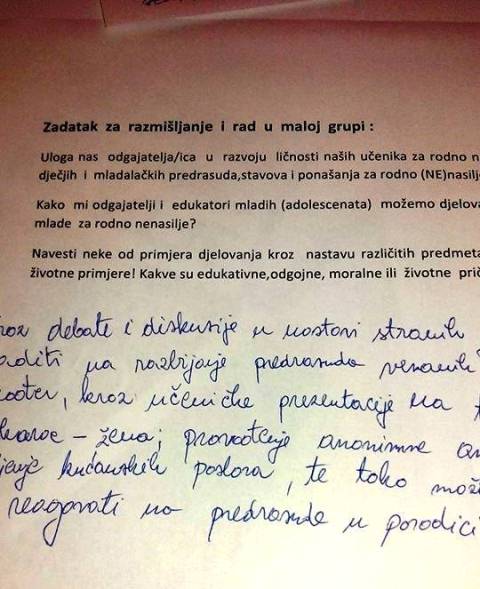 Zadatak za razmišljanje i rad u maloj grupi :
Uloga nas odgajatelja/ica u razvoju ličnosti naših učenika za rodno n
dječjih i mladalačkih predrasuda,stavova i ponašanja za rodno (NE)nasilj
Kako mi odgajatelji i edukatori mladih (adolescenata) možemo djelova
mlade za rodno nenasilje?
Navesti neke od primjera djelovanja kroz nastavu različitih predmeta
životne primjere! Kakve su edukativne,odgojne, moralne ili životne prič
roz debate i diskusije u nastavi stranih
aditi na razbijanje predrasuda vezanih
kroz učeničke prezentacije na
karac - žena; provođenje anonimne an
kućanskih poslova, te tako mož
reagovati na predrasude u porodici